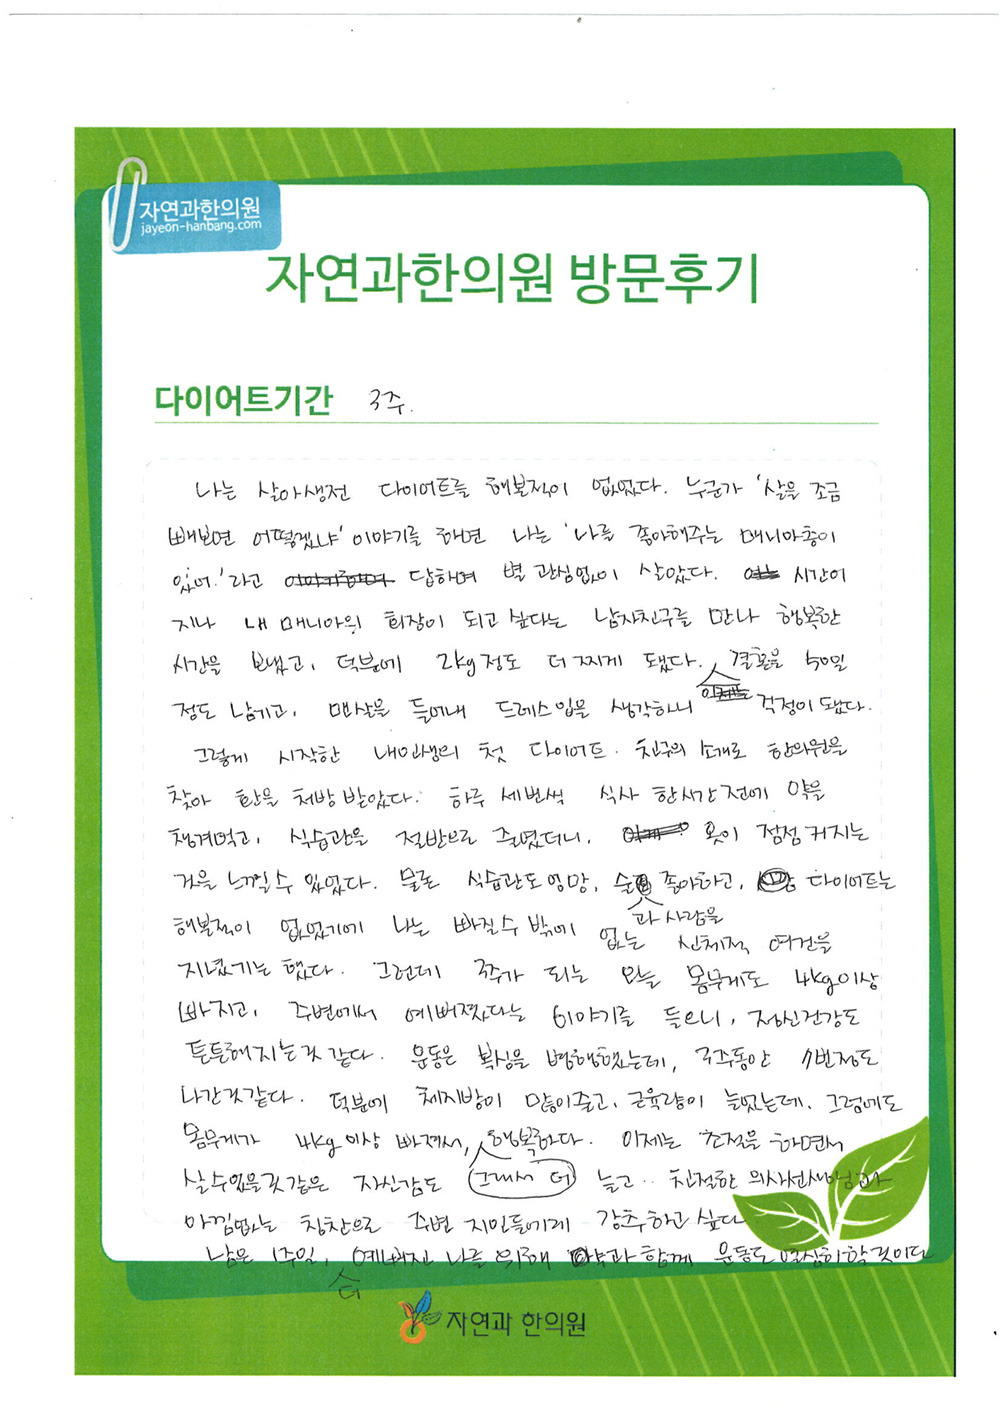 자연과한의원
jayeon-hanbang.com
자연과한의원 방문후기
다이어트기간 3주.
나는 살아생전 다이어트를 해본적이 없었다. 누군가 '살을 조금
빼보면 어떻겠냐' 이야기를 하면 나는 '나를 좋아해주는 매니아층이
있어.'라고 답하며 별 관심없이 살았다. 시간이
지나 내 매니아의 회장이 되고 싶다는 남자친구를 만나 행복한
시간을 보냈고, 덕분에 2kg정도 더 찌게 됐다. 결혼을 50일
정도 남기고, 맨살을 들어내 드레스입을 생각하니 걱정이 됐다.
그렇게 시작한 내인생의 첫 다이어트. 친구의 소개로 한의원을
찾아 환을 처방 받았다. 하루 세번씩 식사 한시간 전에 약을
챙겨먹고, 식습관을 절반으로 줄였더니, 옷이 점점 커지는
것을 느낄 수 있었다. 물론 식습관도 엉망, 술과 사람을 좋아하고, 다이어트는
해본적이 없었기에 나는 빠질수 밖에 없는 신체적 여건을
지녔기는 했다. 그런데 3주가 되는 오늘 몸무게도 4kg이상
빠지고, 주변에서 예뻐졌다는 이야기를 들으니, 정신건강도
튼튼해지는것 같다. 운동은 복싱을 병행했는데, 3주동안 7번정도
나간것같다. 덕분에 체지방이 많이줄고, 근육량이 늘었는데, 그럼에도
몸무게가 4kg이상 빠져서, 그래서 더 행복하다. 이제는 조절을 하면서
살수있을것같은 자신감도 늘고.. 친절한 의사선생님과
아낌없는 칭찬으로 주변 지인들에게 강추하고 싶다
남은 1주일, 더 예뻐진 나를 위해 약과 함께 운동도 열심히할것이다
자연과 한의원